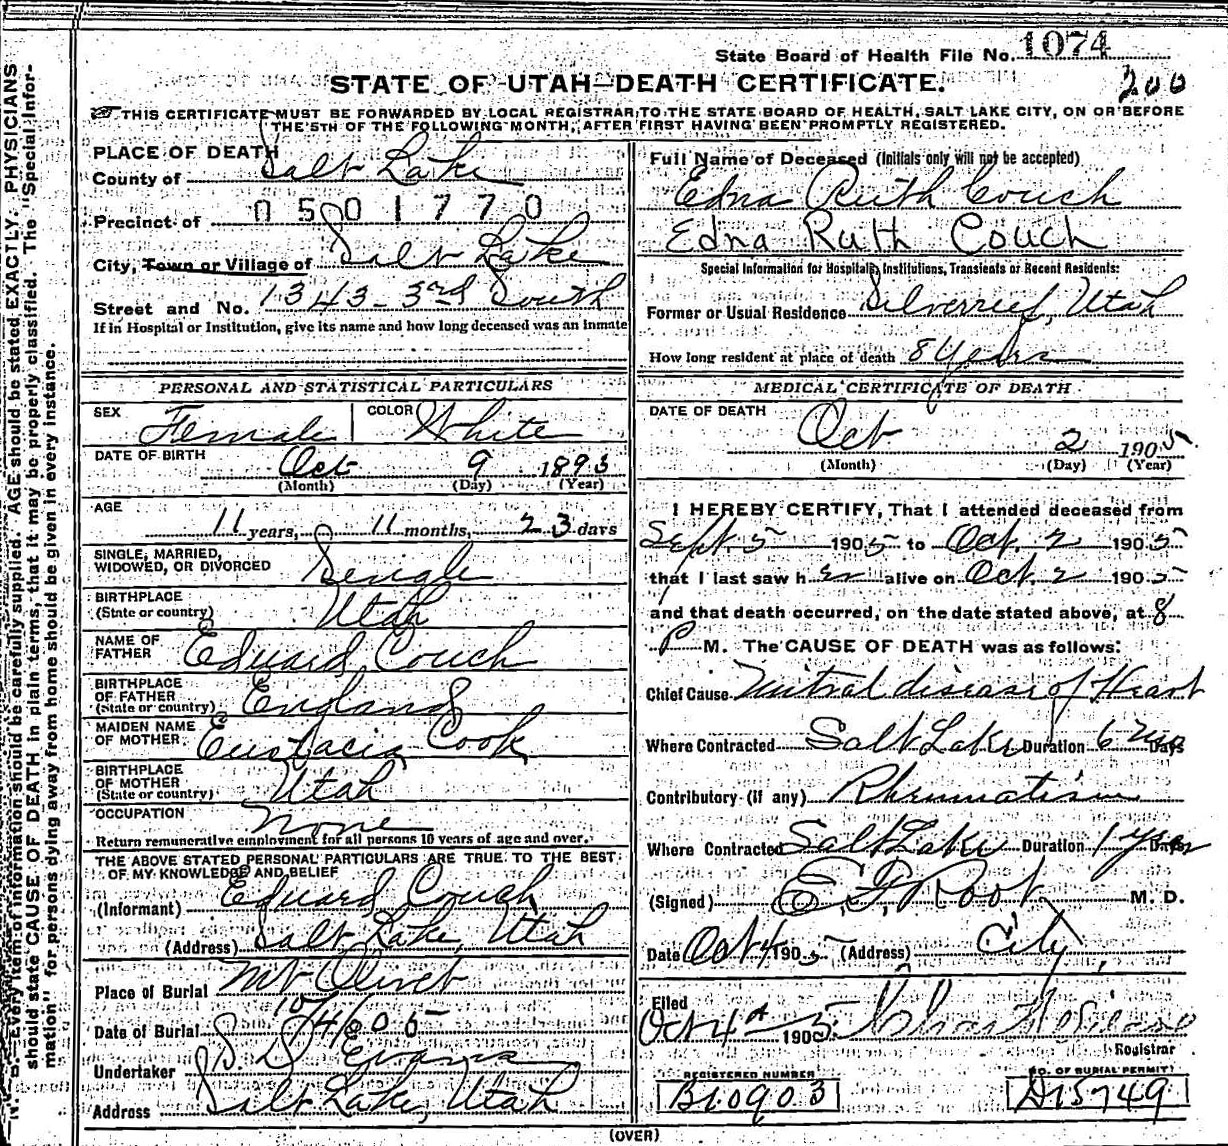 State Board of Health File No. 1074
STATE OF UTAH—DEATH CERTIFICATE.
200
THIS CERTIFICATE MUST BE FORWARDED BY LOCAL REGISTRAR TO THE STATE BOARD OF HEALTH, SALT LAKE CITY, ON OR BEFORE
THE 5TH OF THE FOLLOWING MONTH, AFTER FIRST HAVING BEEN PROMPTLY REGISTERED.
PLACE OF DEATH
County of Salt Lake
Precinct of 0501770
City, Town or Village of Salt Lake
Street and No. 1343-3rd South
If in Hospital or Institution, give its name and how long deceased was an inmate
Full Name of Deceased (Initials only will not be accepted)
Edna Ruth Couch
Edna Ruth Couch
Special Information for Hospitals, Institutions, Transients or Recent Residents:
Former or Usual Residence Silverreef, Utah
How long resident at place of death 8 Years
PERSONAL AND STATISTICAL PARTICULARS
SEX Female COLOR White
DATE OF BIRTH Oct 9 1893
(Month) (Day) (Year)
AGE
11 years, 11 months, 23 days
SINGLE, MARRIED,
WIDOWED, OR DIVORCED Single
BIRTHPLACE
(State or country) Utah
NAME OF
FATHER Eduard Couch
BIRTHPLACE
OF FATHER
(State or country) England
MAIDEN NAME
OF MOTHER Eustacia Cook
BIRTHPLACE
OF MOTHER
(State or country) Utah
OCCUPATION None
Return remunerative employment for all persons 10 years of age and over.
THE ABOVE STATED PERSONAL PARTICULARS ARE TRUE TO THE BEST
OF MY KNOWLEDGE AND BELIEF
(Informant) Eduard Couch
(Address) Salt Lake, Utah
Place of Burial Mt Olivet
Date of Burial 10/4/05
Undertaker S. D. Evans
Address Salt Lake, Utah
MEDICAL CERTIFICATE OF DEATH
DATE OF DEATH
Oct 2 1905
(Month) (Day) (Year)
I HEREBY CERTIFY, That I attended deceased from
Sept. 5 1905 to Oct. 2 1905
that I last saw her alive on Oct. 2 1905
and that death occurred, on the date stated above, at 8
P M. The CAUSE OF DEATH was as follows:
Chief Cause Mitral disease of Heart
Where Contracted Salt Lake Duration 6 mo Days
Contributory (if any) Rheumatism
Where Contracted Salt Lake Duration 1 year Days
(Signed) E. F. Root M. D.
Date Oct 4 1905 (Address) City
Filed
Oct 4th 1905
Registrar
REGISTERED NUMBER
B10903
NO. OF BURIAL PERMIT
A15749
(OVER)
N. B.—Every item of information should be carefully supplied. AGE should be stated EXACTLY. PHYSICIANS
should state CAUSE OF DEATH in plain terms, that it may be properly classified. The "Special Infor-
mation" for persons dying away from home should be given in every instance.